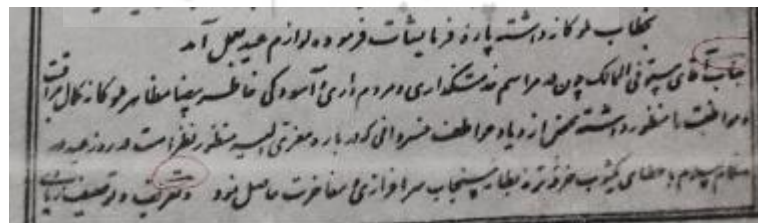 بخطاب ملوکانه داشته پاره فرمایشات فرموده لوازم عید بعمل آمد
جناب آقای مستوفی الممالک چون در مراسم خدمتگذاری و مردم داری و آسودگی خاطر مظاهر ملوکانه کمال مراقبت
و مواظبت را منظور داشته محض ازدیاد عواطف خسروانی که درباره معزی الیه منظور نظر است در روز عید در
سلام باعطای یکثوب خرقه ترمه بطانه سنجاب سرافرازی و مفاخرت حاصل نمود و تعریف و توصیف زیادی